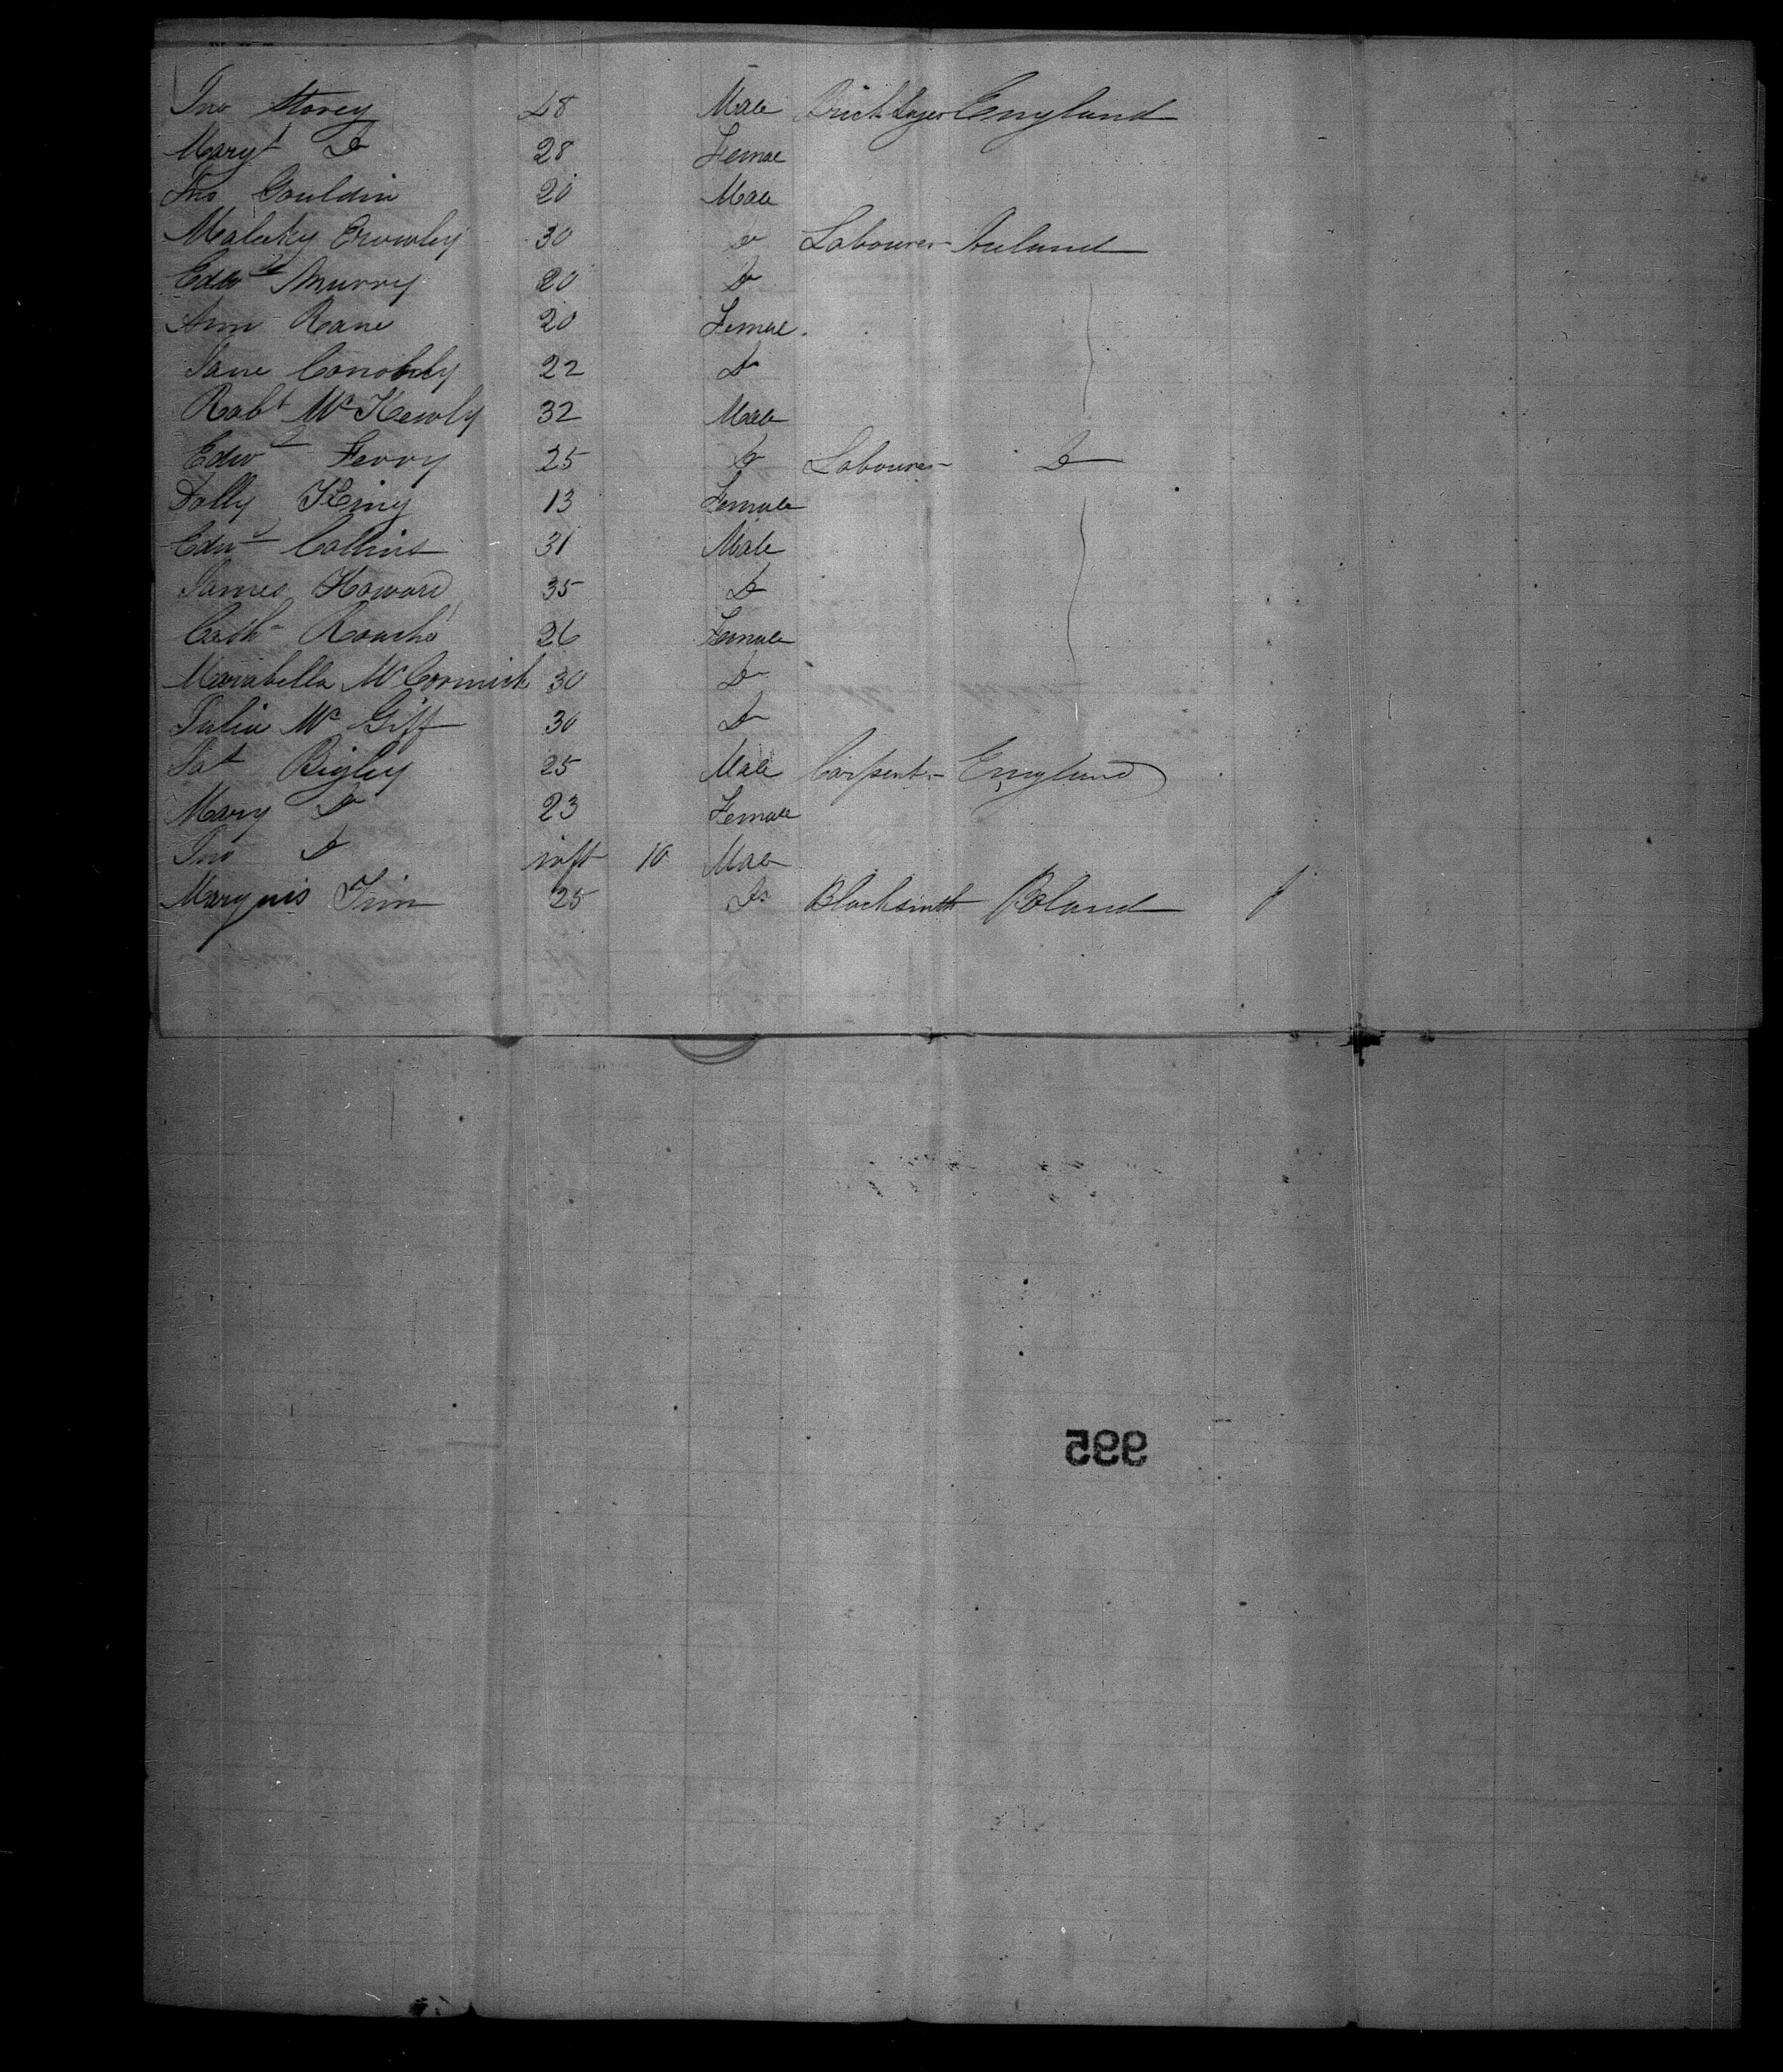 Jno Storey 48 Male Brick Layer England
Maryt Do 28 Femae
Jno Gouldin 20 Male
Malecky Crowley 30 Do Labourer Ireland
Edwd Murry 20 Do
Ann Kane 20 Femae
Jane Conobely 22 Do
Robt McKewly 32 Male
Edwd Ferry 25 Do Labourer Do
Dolly King 13 Female
Edwd Collins 31 Male
James Howard 35 Do
Cath Roach 26 Female
Marabella McCormick 30 Do
Julia Mc Giff 30 Do
Pat Bigley 25 Male Carpent England
Mary Do 23 Female
Jno Do inft 10 Male
Marquis Tim 25 Do Blacksmith Poland
995